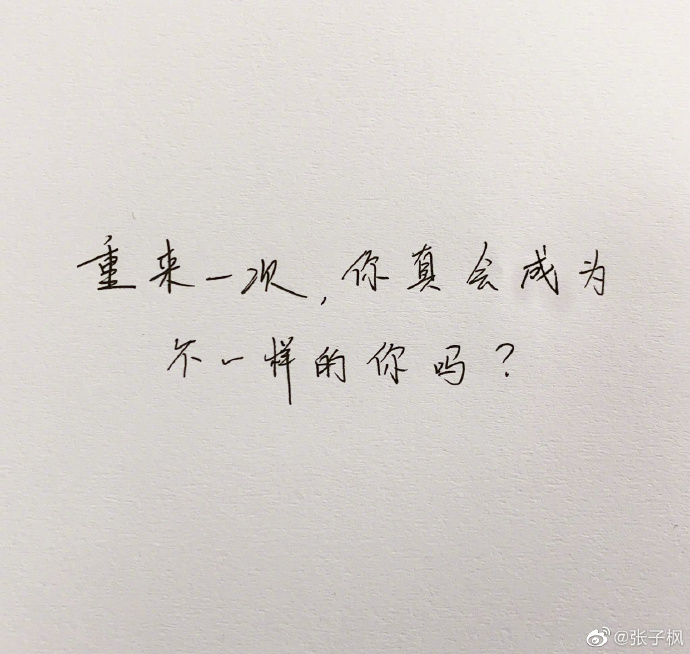 重来一次,你真会成为
不一样的你吗?
@张子枫